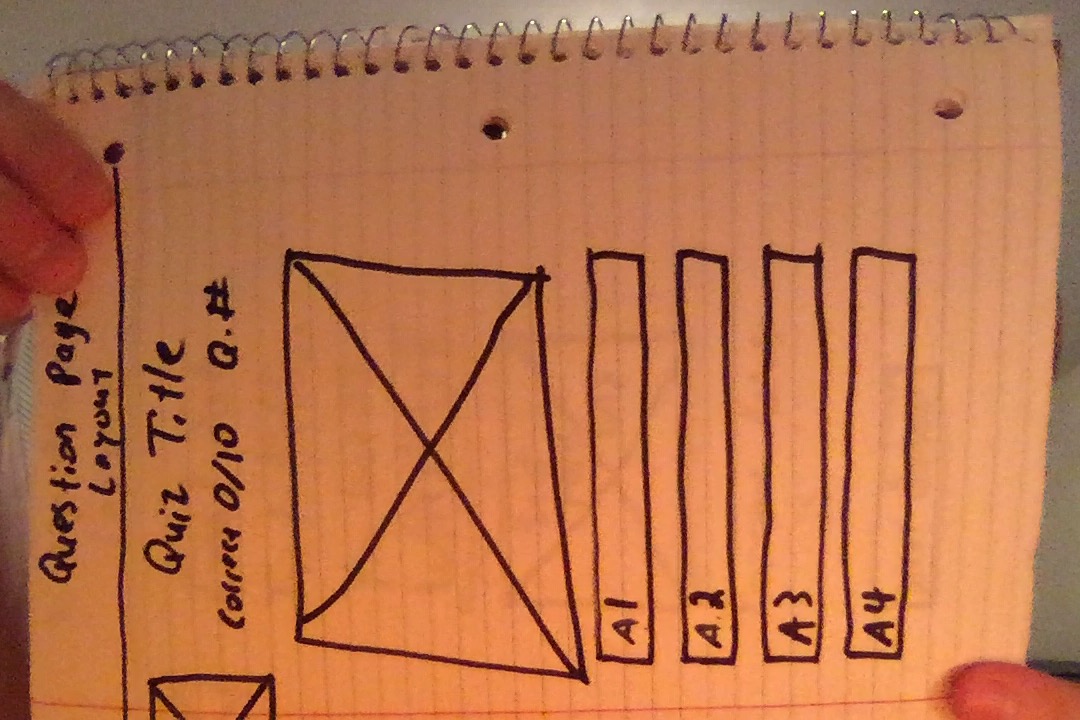 Question Page
Layout
Quiz Title
Correct 0/10 Q.#
A1
A.2
A3
A4